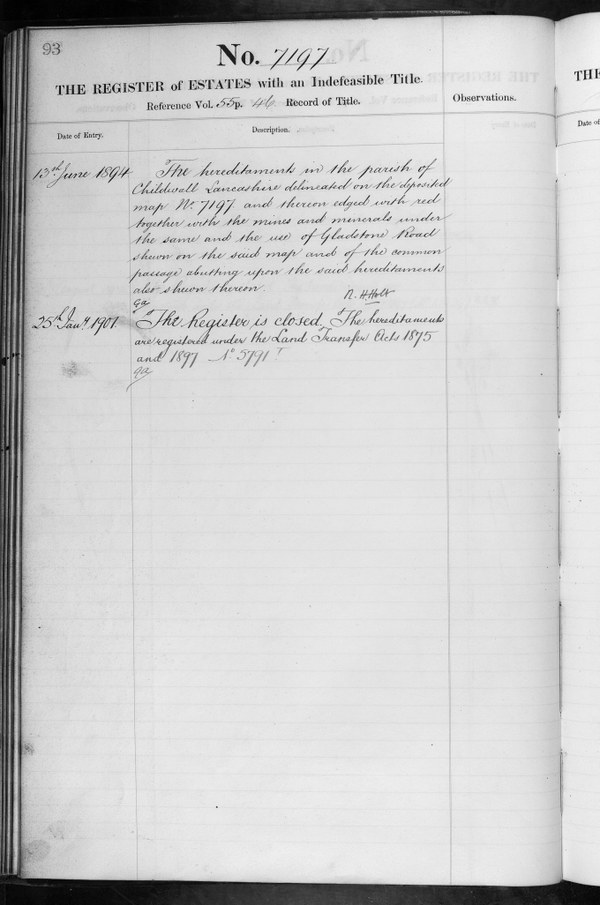 93
No. 7197
THE REGISTER of ESTATES with an Indefeasible Title.
Reference Vol. 55 p. 46 Record of Title.
Observations.
Date of Entry.
Description.
13th June 1894
The hereditaments in the parish of
Childwall Lancashire delineated on the deposited
map No. 7197 and thereon edged with red
together with the mines and minerals under
the same and the use of Gladstone Road
shewn on the said map and of the common
passage abutting upon the said hereditaments
also shewn thereon
R. H. Holt
25th Jany. 1901
The Register is closed. The hereditaments
are registered under the Land Transfer Acts 1875
and 1897 No 5791
THE
Date of